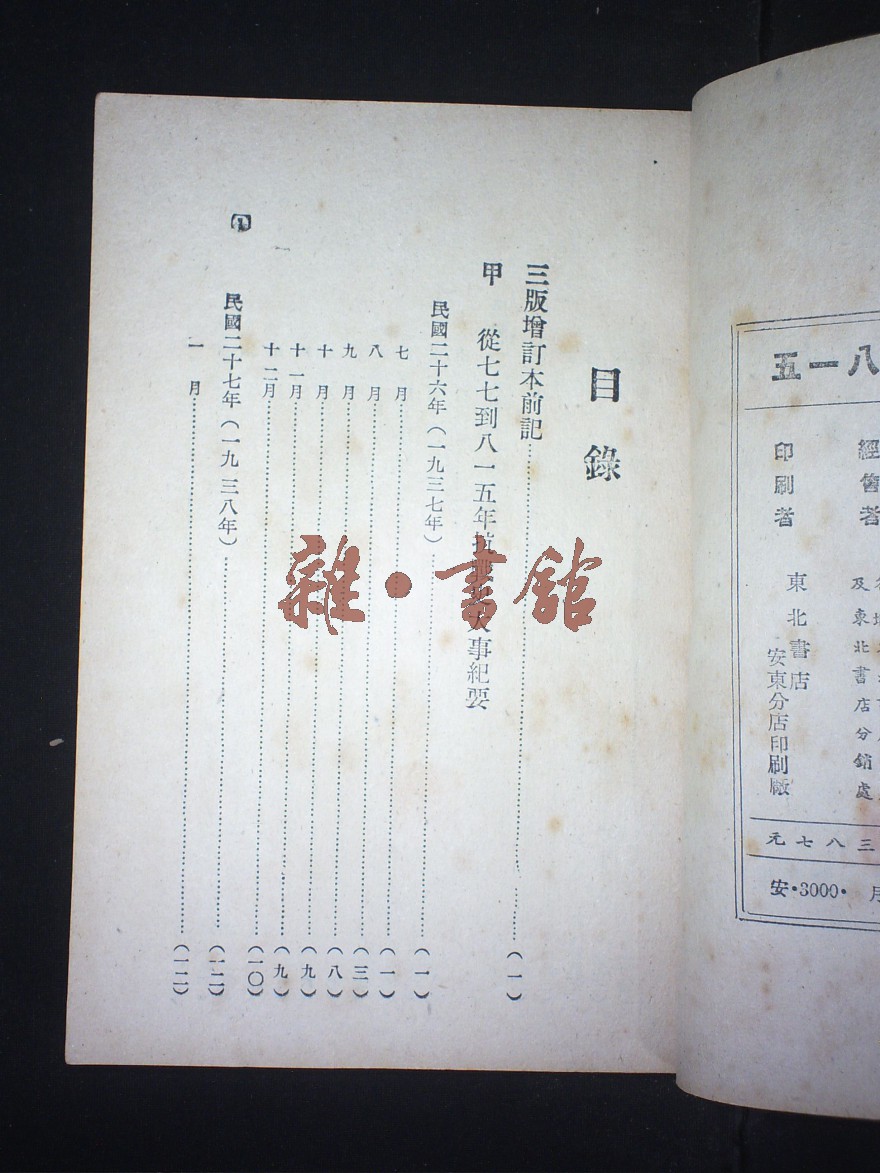 八一五
經售者
及東北書店分銷處
印刷者
東北書店
安東分店印刷廠
三八七元
安·3000·
目錄
三版增訂本前記……(一)
甲 從七七到八一五年 大事紀要
民國二十六年(一九三七年)……(一)
七月……(一)
八月……(三)
九月……(八)
十月……(九)
十一月……(九)
十二月……(一〇)
民國二十七年(一九三八年)……(一二)
一月……(一二)
【1】
雜·書館